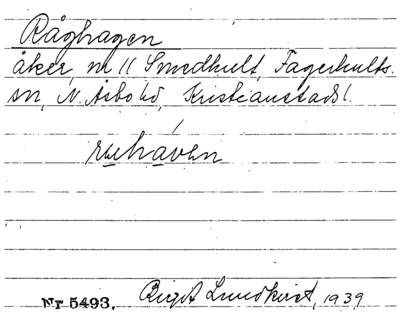 Råghagen
åker, nr 11 Smedhult, Fagerhults.
sn, N. Åsbo hd, Kristianstads l.
ruɩhaven
Nr 5493. Birgit Lundkvist, 1939